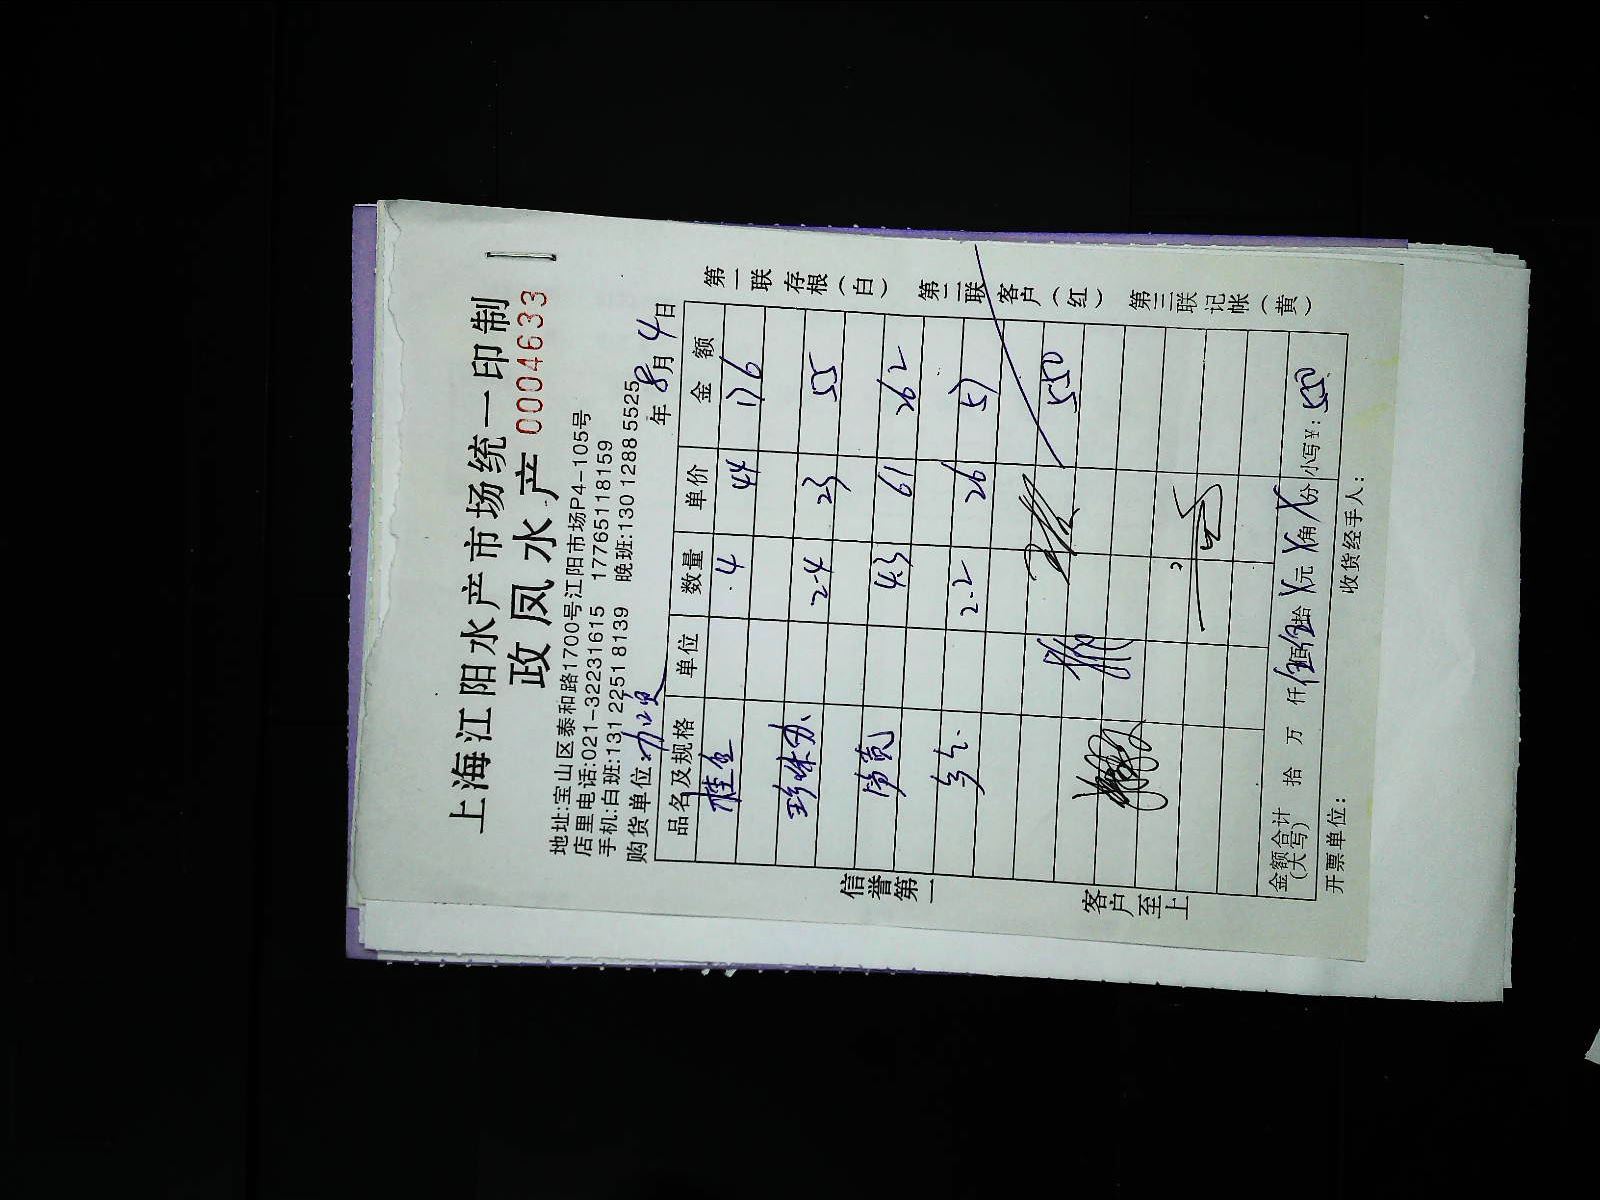 上海江阳水产市场统一印制
政凤水产 0004633
地址:宝山区泰和路1700号江阳市场P4-105号
店里电话:021-32231615 17765118159
手机:白班:131 2251 8139 晚班:130 1288 5525
购货单位: 年 8 月 4 日
品名及规格 单位 数量 单价 金额
4 44 176
珍 2.4 23 55
4.3 61 262
2.2 26 57
550
金额合计(大写) 拾 万 仟 伍佰伍拾 X 元 X 角 X 分 小写¥: 550
开票单位: 收货经手人:
信誉第一
客户至上
第一联存根(白) 第二联客户(红) 第三联记帐(黄)